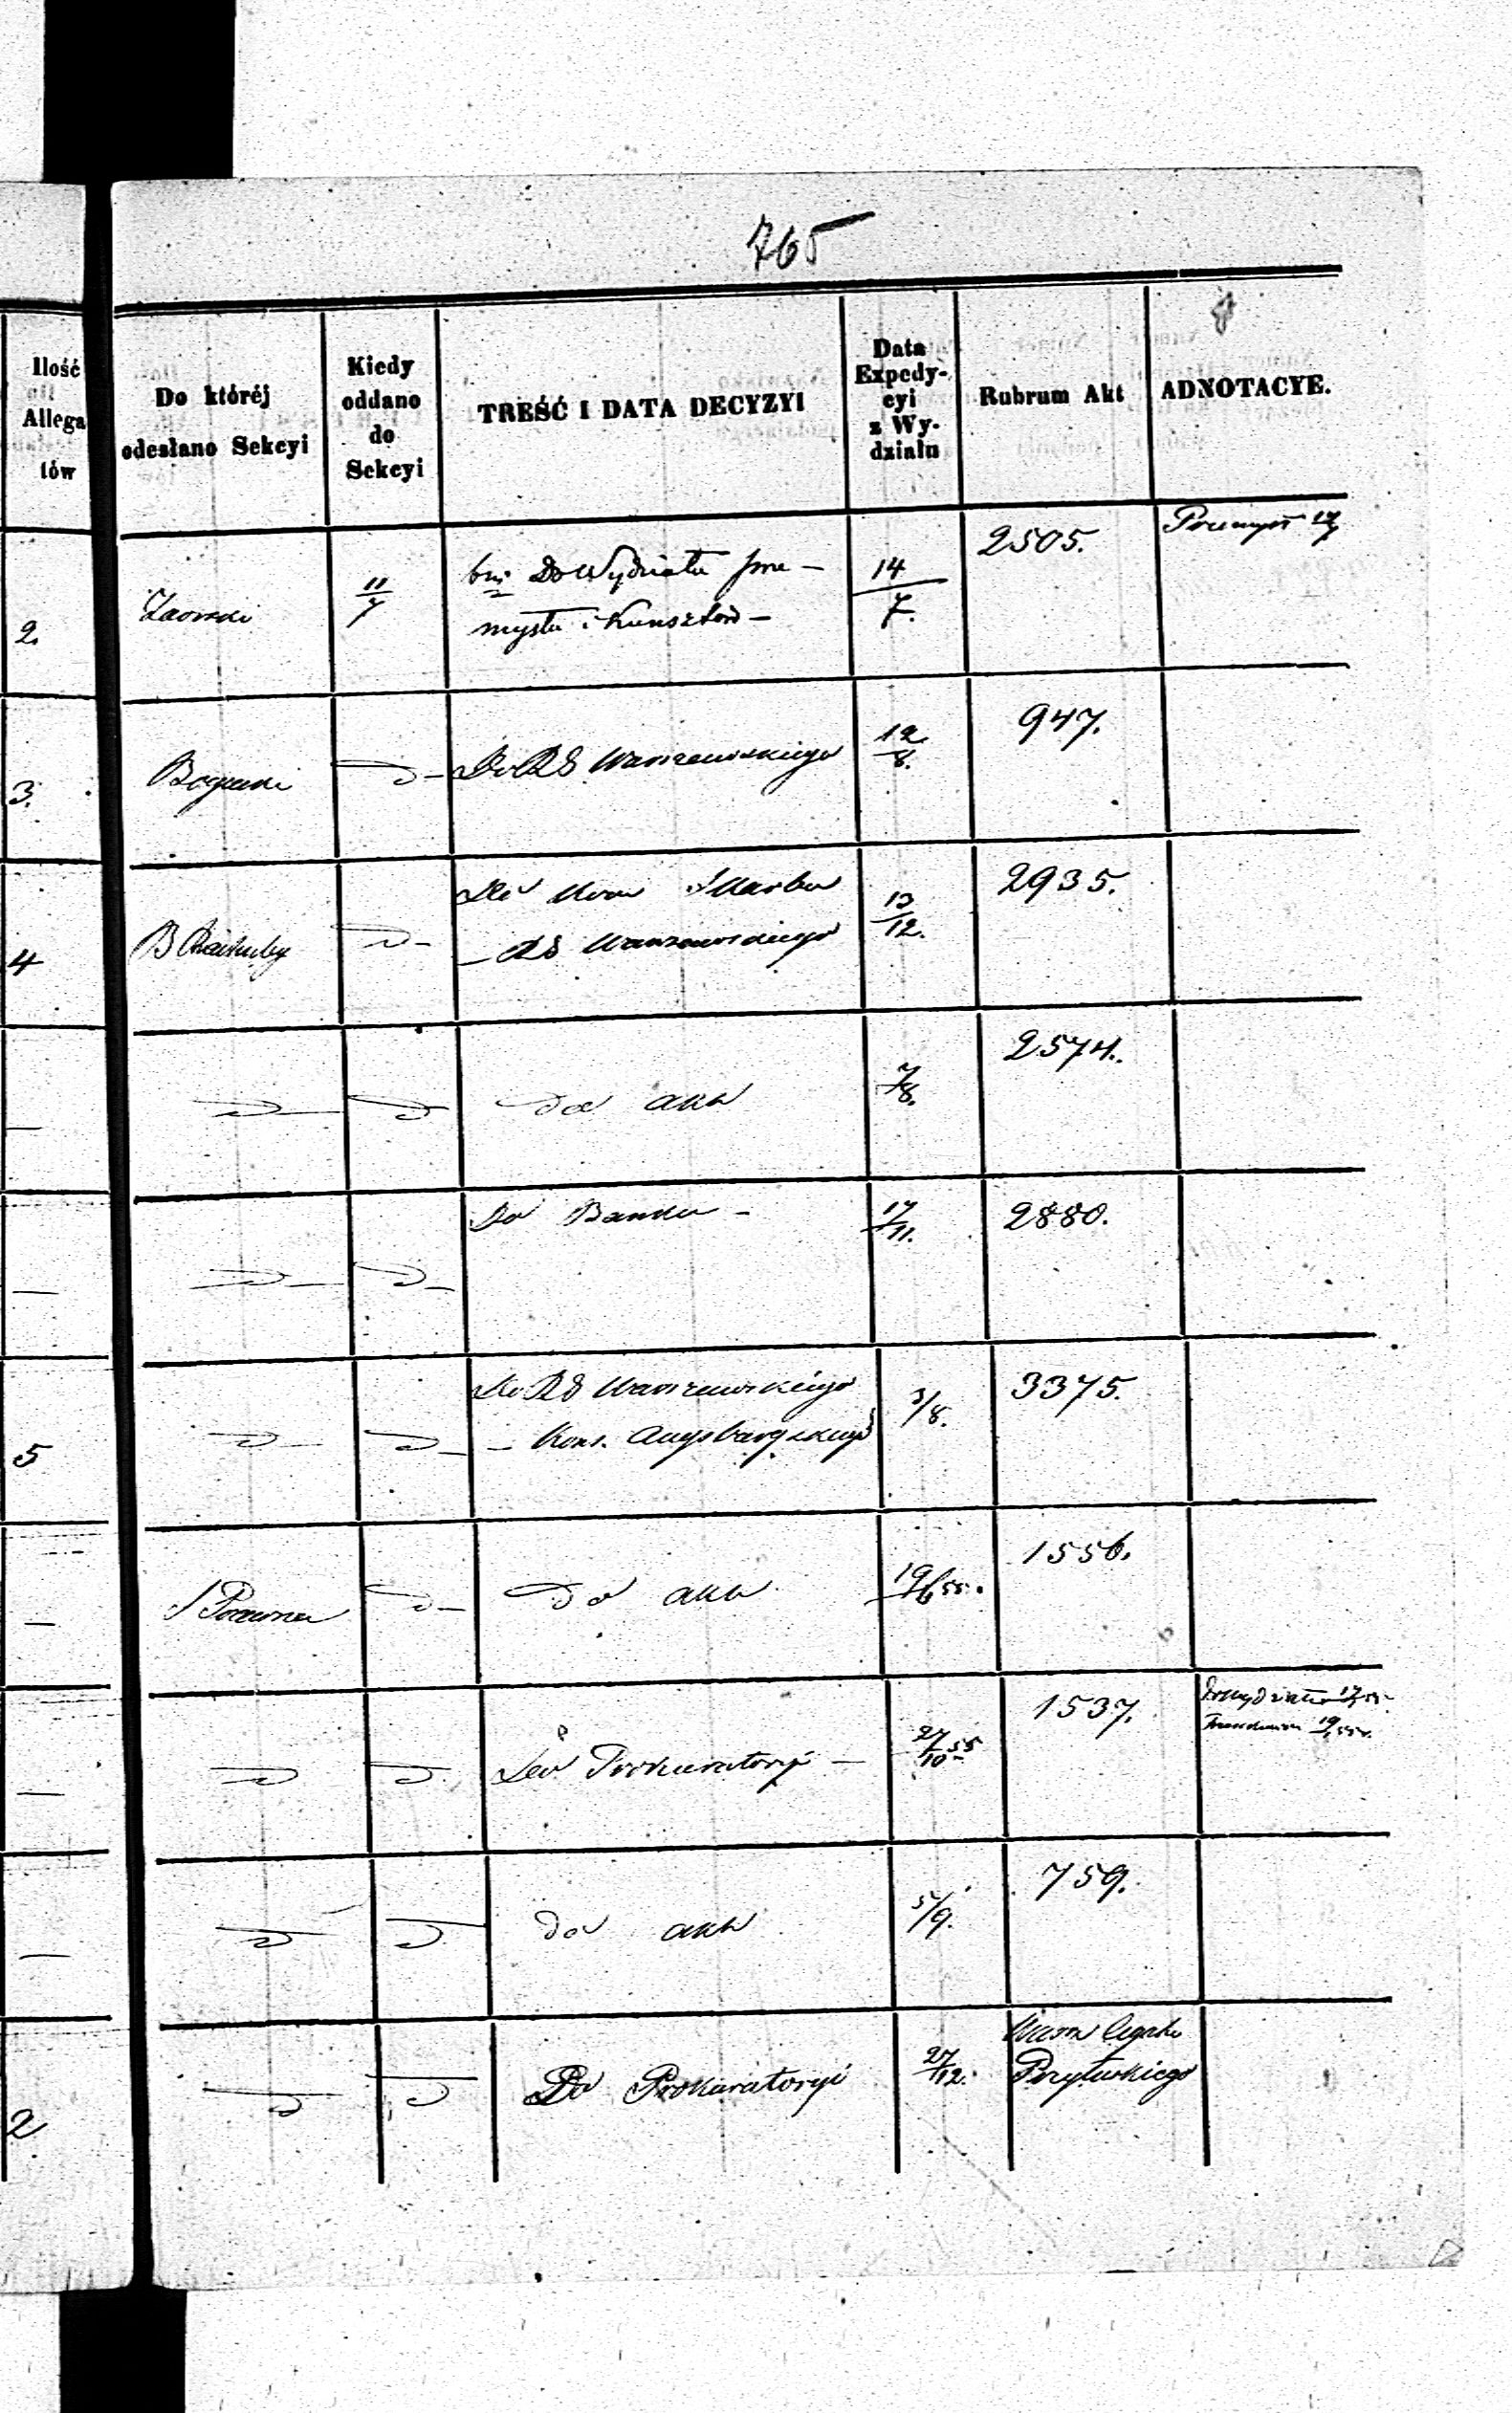 765
Ilość
Allega
tów
Do któréj
odesłano Sekcyi
Kiedy
oddano
do
Sekcyi
TREŚĆ I DATA DECYZYI
Data
Expedy-
cyi
z Wy-
działu
Rubrum Akt
ADNOTACYE.
2.
11/7
Do Wydziału Prze-
mysłu i Kunsztów -
14/7.
2505.
Przemysł
3.
Do RG Warszawskiego
12/8.
947.
4
Do Kom Skarbu
- RG Warszawskiego
13/12.
2935.
—
do akt
7/8.
2574.
—
Do Banku -
17/11.
2880.
5
Do RG Warszawskiego
- Kons. Augsburgskiego
3/8.
3375.
—
do akt
19/6 55.
1556.
—
Do Prokuratoryi -
27/10 55
1537.
—
do akt
5/9.
759.
2
Do Prokuratoryi
27/12.